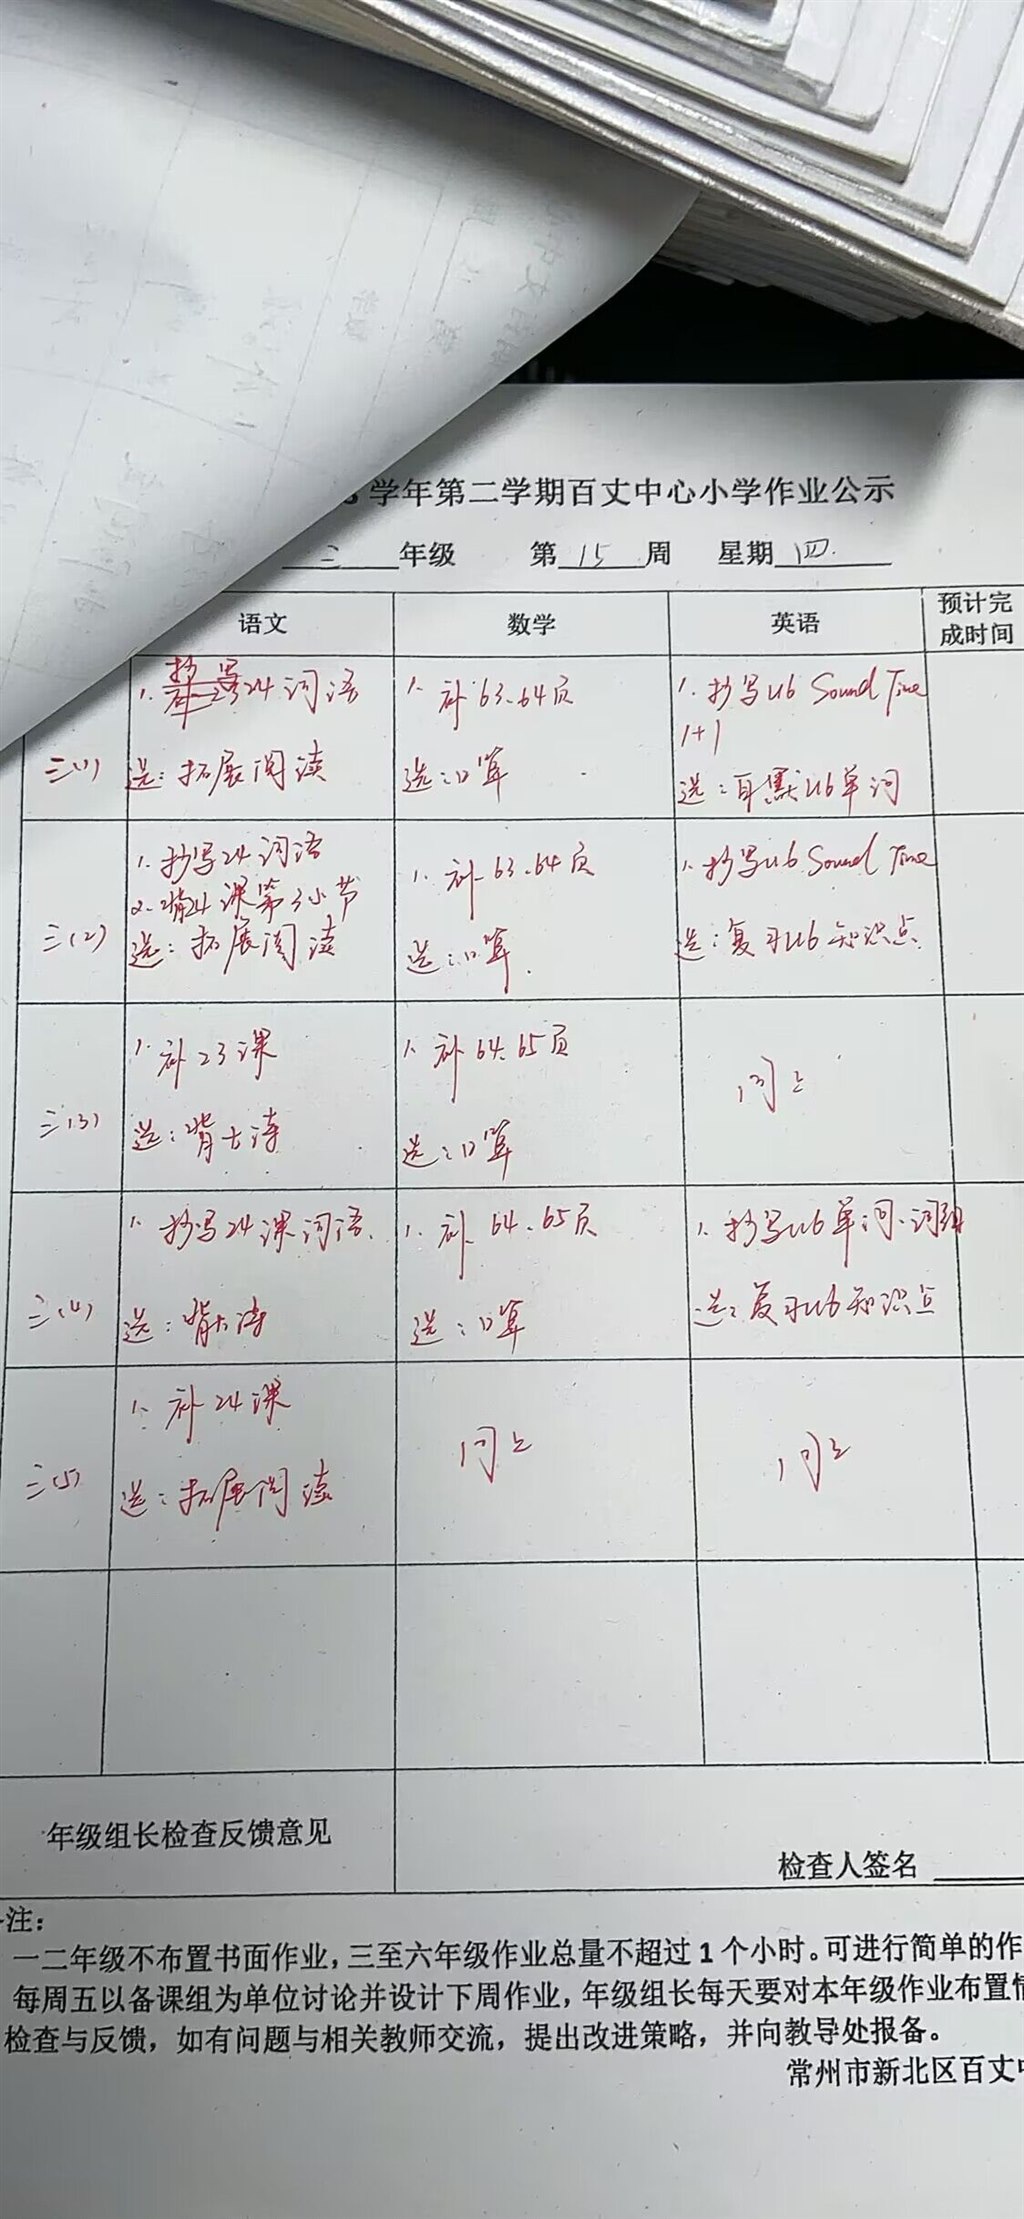 学年第二学期百丈中心小学作业公示
三 年级 第 15 周 星期 四
语文 数学 英语 预计完成时间
三(1)
1. 抄写24词语
选：拓展阅读
1. 补63、64页
选：口算
1. 抄写U6 Sound Time
1+1
选：耳默U6单词
三(2)
1. 抄写24词语
2. 背24课第3小节
选：拓展阅读
1. 补63、64页
选：口算
1. 抄写U6 Sound Time
选：复习U6知识点
三(3)
1. 补23课
选：背古诗
1. 补64、65页
选：口算
同上
三(4)
1. 抄写24课词语
选：背古诗
1. 补64、65页
选：口算
1. 抄写U6单词、词组
选：复习U6知识点
三(5)
1. 补24课
选：拓展阅读
同上
同上
年级组长检查反馈意见
检查人签名
注：
一二年级不布置书面作业，三至六年级作业总量不超过1个小时。可进行简单的作
每周五以备课组为单位讨论并设计下周作业，年级组长每天要对本年级作业布置情
检查与反馈，如有问题与相关教师交流，提出改进策略，并向教导处报备。
常州市新北区百丈中